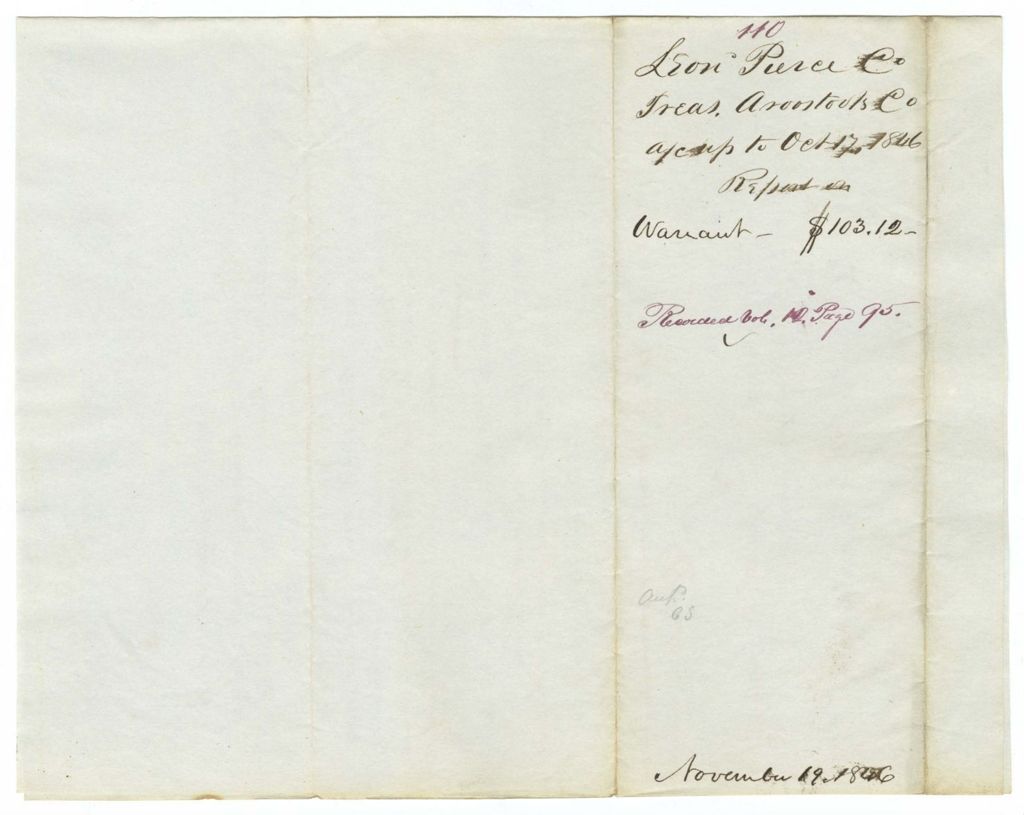 110
Leon^d Pierce Co
Treas. Aroostook Co
a/c up to Oct 17, 1846
Report on
Warrant - $103.12-
Recorded Vol. 12. Page 95.
November 19. 1846